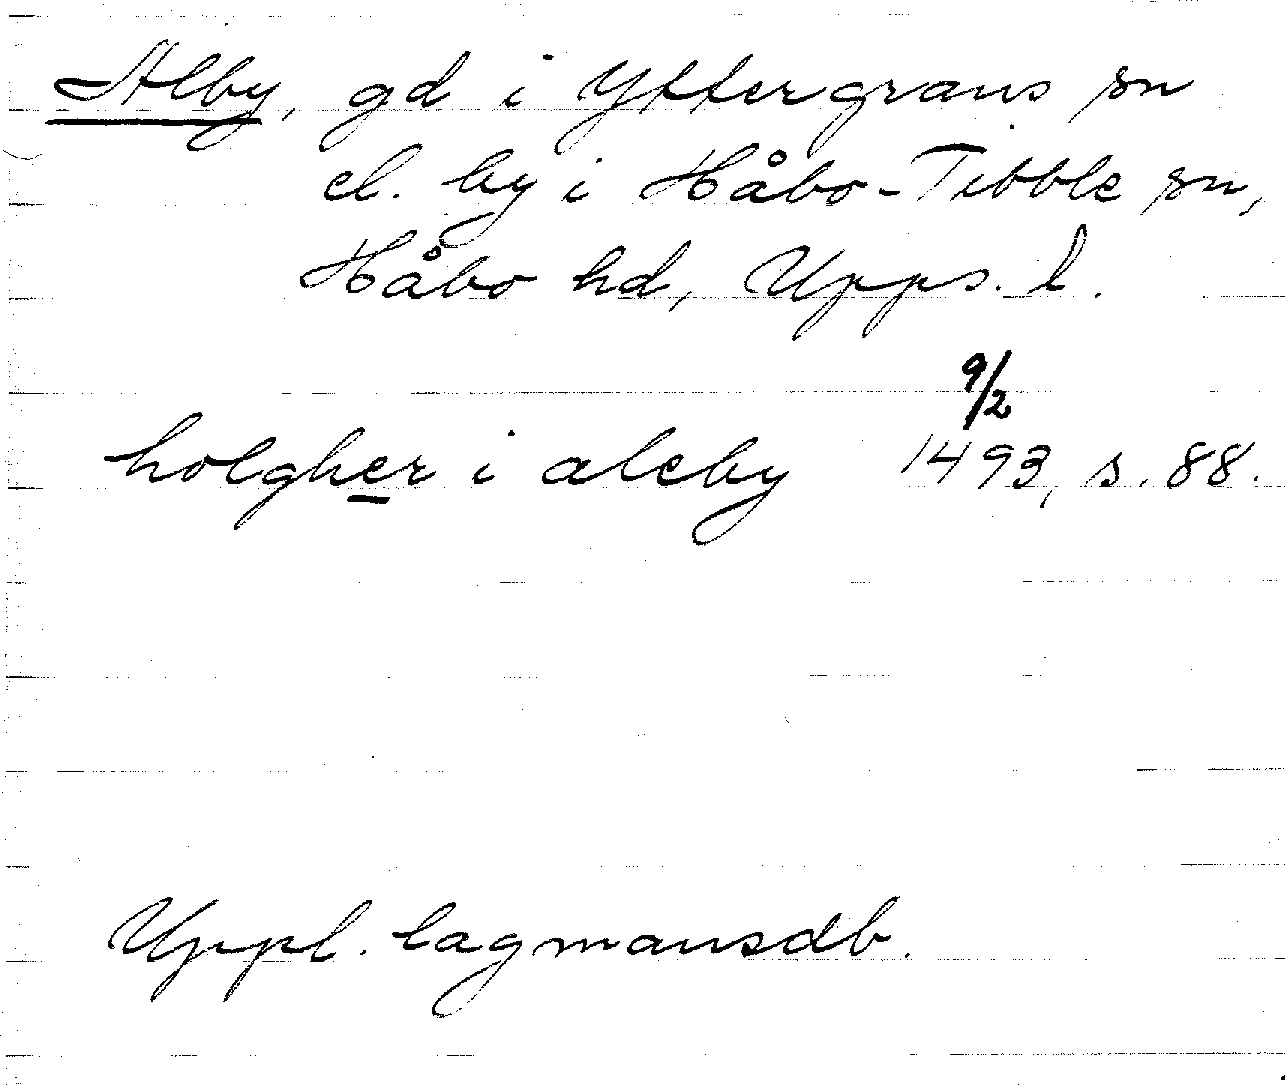 Alby, gd i Yttergrans sn
el. by i Håbo-Tibble sn,
Håbo hd, Upps. l.
9/2
holgher i aleby 1493, s. 88.
Uppl. lagmansdb.